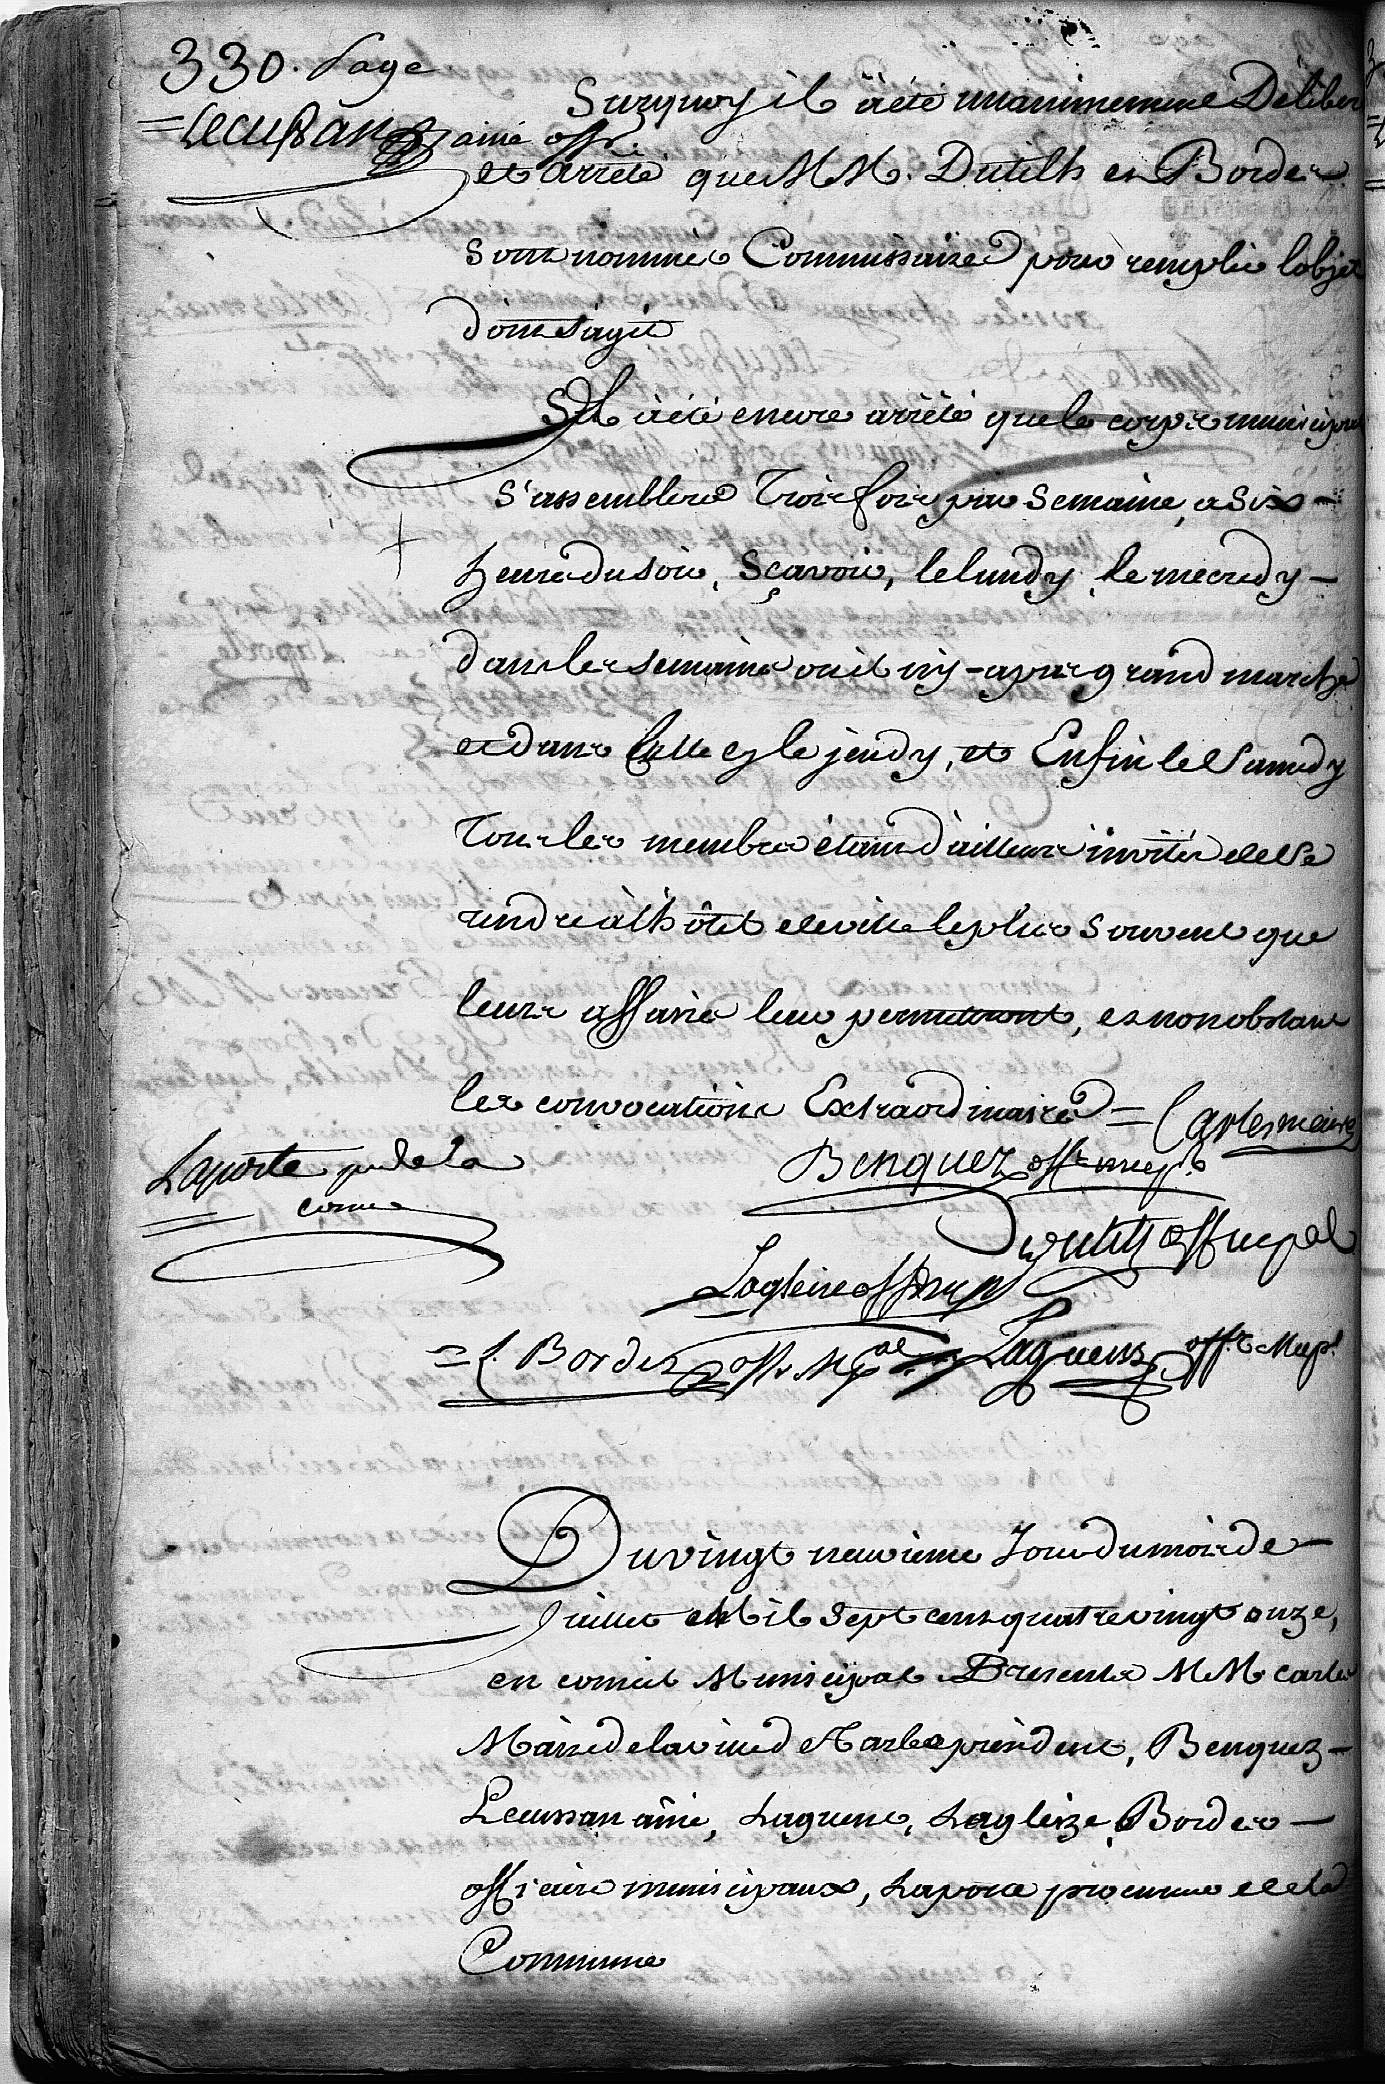 330. Page
Surquoy il a été unanimement Déliberé
= Lecussan ainé offr.
et arrêté que MM. Dutilh et Bordes
sont nommés Commissaires pour remplir l'objet
dont s'agit
Il a été encore arrêté que le corps municipal
s'assemblera Trois fois par semaine, a six
heures du soir, Sçavoir, le lundy, le mecredy
dans les semaines ou il n'y a pas grand marché
et dans celle cy le jeudy, et Enfin le Samedy
Tous les membres étant d'ailleurs invités de se
rendre à l'hôtel de ville le plus souvent que
leurs affaires leur permettront, et nonobstant
les convocations Extraordinaires = Carles maire
Laporte pr de la
come
Benquez offr mupl
Dutilh off mupal
Lagleize off mupl
= J. Bordes offr. Mpal
Laguens offr. Mupl
Du vingt neuvieme Jour du mois de
Juillet Mil sept cens quatre vingt onze,
en comité Municipal Presents MM carles
Maire de la ville de Tarbe president, Benquez
Lecussan ainé, Laguens, Lagleize, Bordes
officiers municipaux, Laporte procureur de la
Commune